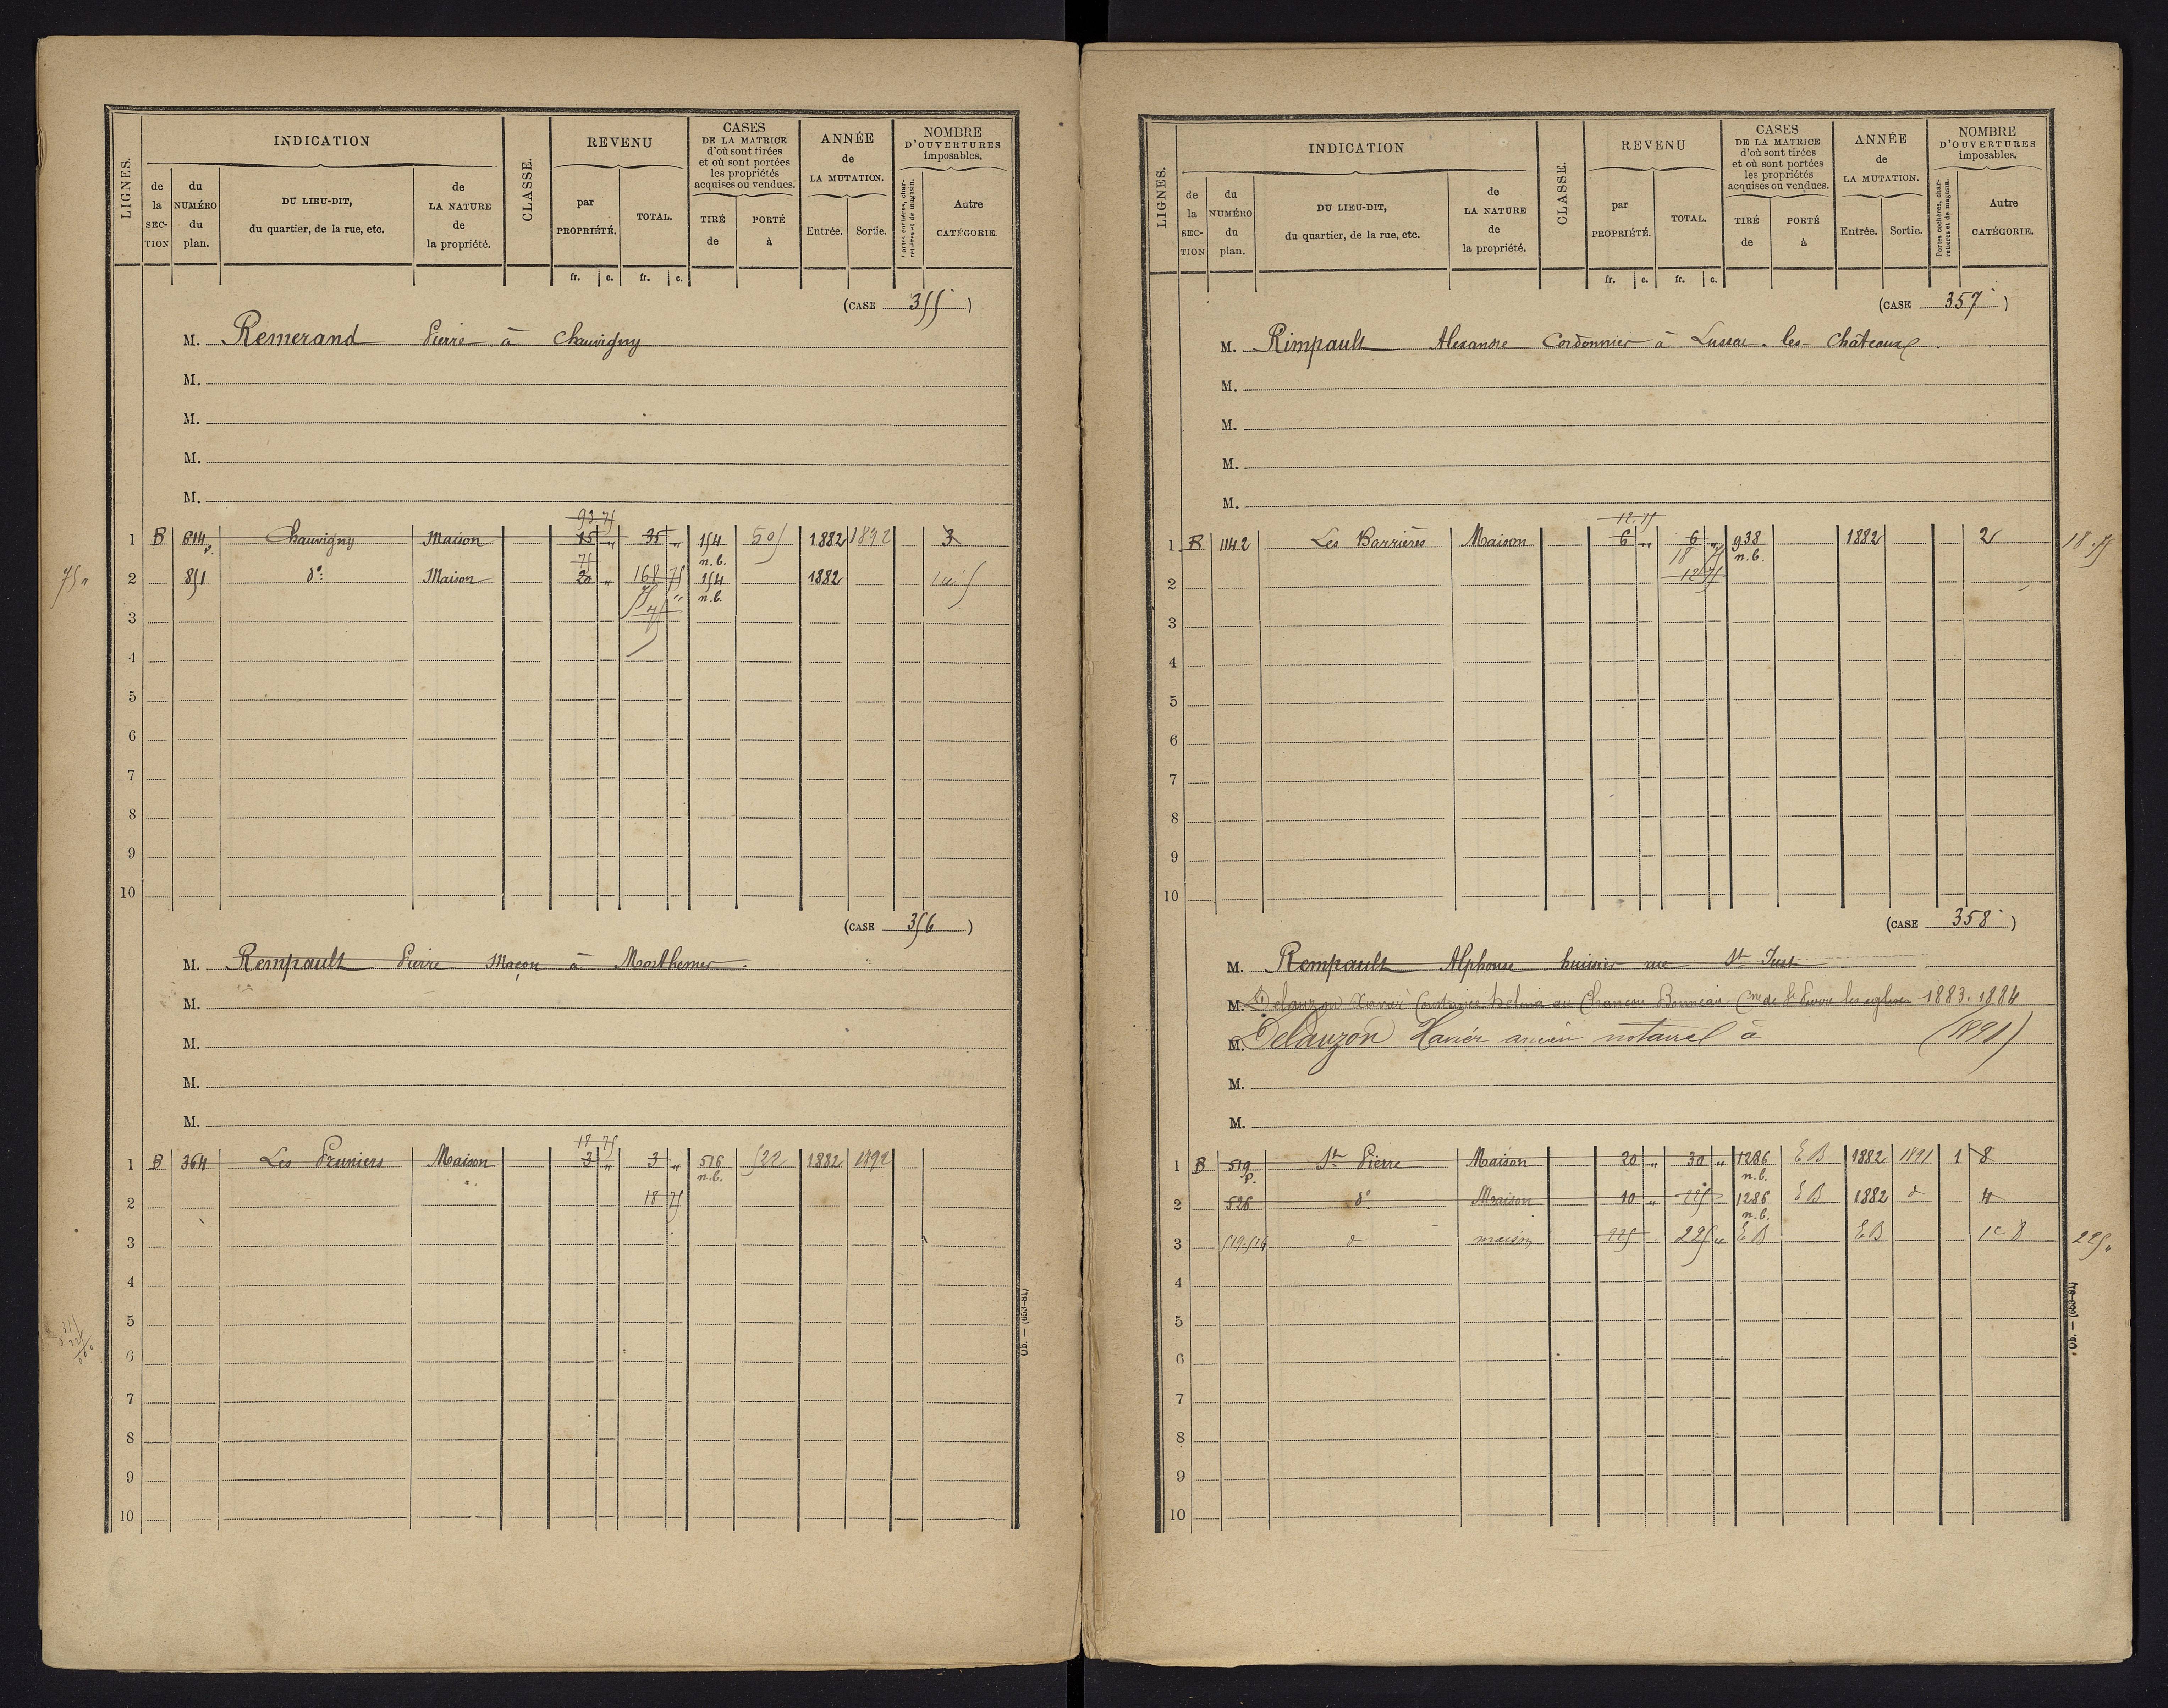 LIGNES.
INDICATION
CLASSE.
REVENU
CASES
DE LA MATRICE
d'où sont tirées
et où sont portées
les propriétés
acquises ou vendues.
ANNÉE
de
LA MUTATION.
NOMBRE
D'OUVERTURES
imposables.
de la SECTION
du NUMÉRO du plan.
DU LIEU-DIT,
du quartier, de la rue, etc.
de LA NATURE de la propriété.
par PROPRIÉTÉ.
TOTAL.
TIRÉ de
PORTÉ à
Entrée.
Sortie.
Portes cochères, charretières et de magasin.
Autre CATÉGORIE.
fr. c. fr. c.
(CASE 355)
M. Remerand Pierre à Chauvigny
M.
M.
M.
M.
93.75
1 B 614 p. Chauvigny Maison 15 „ 35 „ 154 n.b. 505 1882 1892 3
75
75 „ 2 851 d°: Maison 20 „ 168 75 154 n.b. 1882
75 „
3
4
5
6
7
8
9
10
(CASE 356)
M. Rempault Pierre Maçon à Morthemer.
M.
M.
M.
M.
18 75
1 B 364 Les Pruniers Maison 3 „ 3 „ 516 n.b. 522 1882 1892
2 18 75
3
4
5
6
7
8
9
10
Ob. — (653-81)
LIGNES.
INDICATION
CLASSE.
REVENU
CASES
DE LA MATRICE
d'où sont tirées
et où sont portées
les propriétés
acquises ou vendues.
ANNÉE
de
LA MUTATION.
NOMBRE
D'OUVERTURES
imposables.
de la SECTION
du NUMÉRO du plan.
DU LIEU-DIT,
du quartier, de la rue, etc.
de LA NATURE de la propriété.
par PROPRIÉTÉ.
TOTAL.
TIRÉ de
PORTÉ à
Entrée.
Sortie.
Portes cochères, charretières et de magasin.
Autre CATÉGORIE.
fr. c. fr. c.
(CASE 357)
M. Rimpault Alexandre Cordonnier à Lussac-les-Châteaux.
M.
M.
M.
M.
12.75
1 B 1142 Les Barrières Maison 6 „ 6 „ 938 n.b. 1882 2 18.75
18 75
2 12 75
3
4
5
6
7
8
9
10
(CASE 358)
M. Rempault Alphonse huissier rue St Just
M. Delauzon Xavier Constance au Chaneau Bonneau Cne de St Pierre les eglises 1883.1884
M. Delauzon Xavier ancien notaire à (1891)
M.
M.
1 B 519 p. St Pierre Maison 20 „ 30 „ 1286 n.b. E B 1882 1891 1 8
2 526 d° Maison 10 „ 225 1286 n.b. E B 1882 d 4
3 d maison 225 225 „ E B E B 1c 8 225 „
4
5
6
7
8
9
10
Ob. — (653-81)